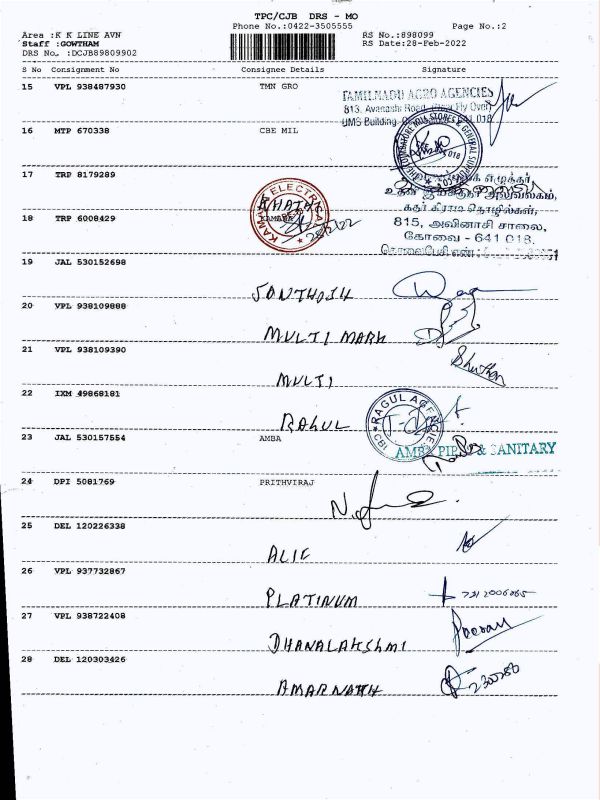 TPC/CJB DRS - MO
Phone No.:0422-3505555 Page No.:2
Area :K K LINE AVN RS No.:898099
Staff :GOWTHAM RS Date:28-Feb-2022
DRS No. :DCJB89809902
S No Consignment No Consignee Details Signature
15 VPL 938487930 TMN GRO
TAMILNADU AGRO AGENCIES
813, Avanashi Road, Fly Over
UMS Building, 641 018
16 MTP 670338 CBE MIL
STORES & GENERAL
17 TRP 8179289
எழுத்தர்
அலுவலகம்,
கதர் கிராம தொழில்கள்,
KAMAL ELECTRICA
18 TRP 6008429
815, அவினாசி சாலை,
28/2/22
கோவை - 641 018.
தொலைபேசி எண் :
19 JAL 530152698
SANTHOSH
20 VPL 938109888
MULTI MARK
21 VPL 938109390
MULTI
22 IXM 49868181
RAGUL AGENCIES
RAHUL
CBE
23 JAL 530157554 AMBA
AMBA PIPE & SANITARY
24 DPI 5081769 PRITHVIRAJ
25 DEL 120226338
ALIE
26 VPL 937732867
PLATINUM
27 VPL 938722408
DHANALAKSHMI
28 DEL 120303426
AMARNATH